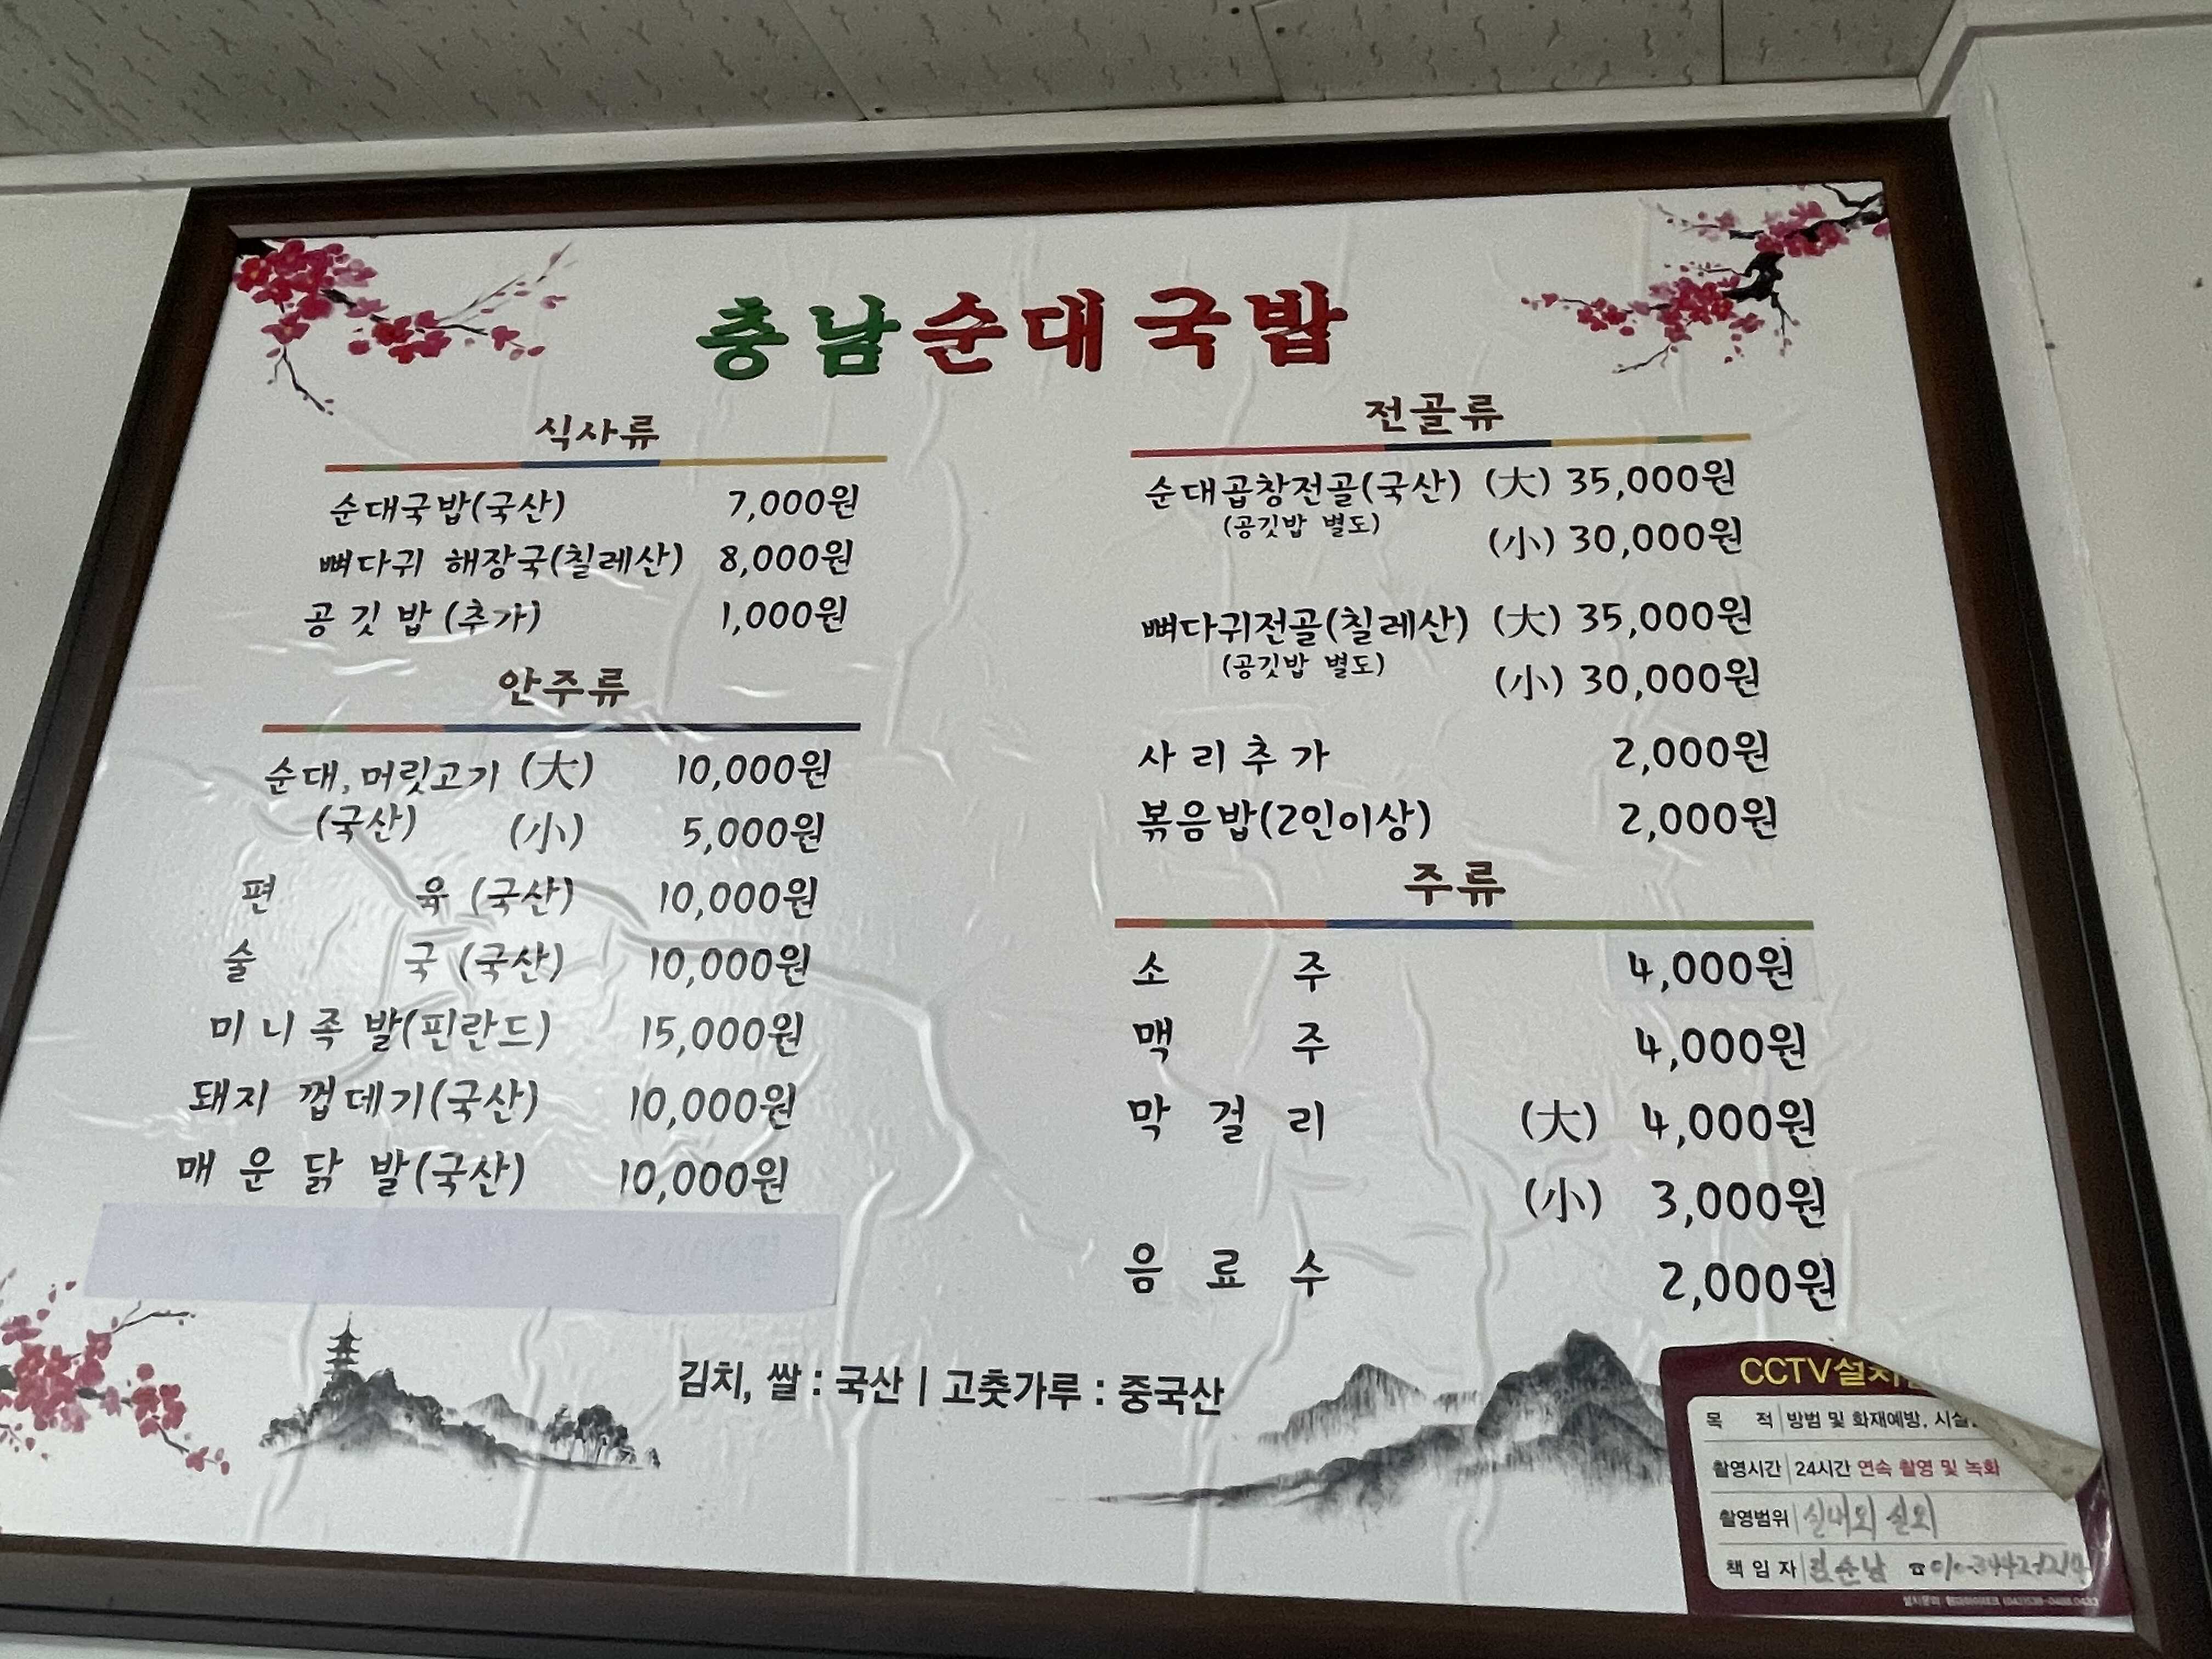 충남순대국밥
식사류
순대국밥(국산) 7,000원
뼈다귀 해장국(칠레산) 8,000원
공깃밥 (추가) 1,000원
안주류
순대, 머릿고기 (大) 10,000원
(국산) (小) 5,000원
편 육 (국산) 10,000원
술 국 (국산) 10,000원
미니족발(핀란드) 15,000원
돼지 껍데기(국산) 10,000원
매운닭발(국산) 10,000원
전골류
순대곱창전골(국산) (大) 35,000원
(공깃밥 별도)
(小) 30,000원
뼈다귀전골(칠레산) (大) 35,000원
(공깃밥 별도)
(小) 30,000원
사리추가 2,000원
볶음밥(2인이상) 2,000원
주류
소 주 4,000원
맥 주 4,000원
막 걸 리 (大) 4,000원
(小) 3,000원
음 료 수 2,000원
김치, 쌀 : 국산 | 고춧가루 : 중국산
CCTV설치
목 적 방범 및 화재예방, 시설
촬영시간 24시간 연속 촬영 및 녹화
촬영범위 실내외 실외
책 임 자